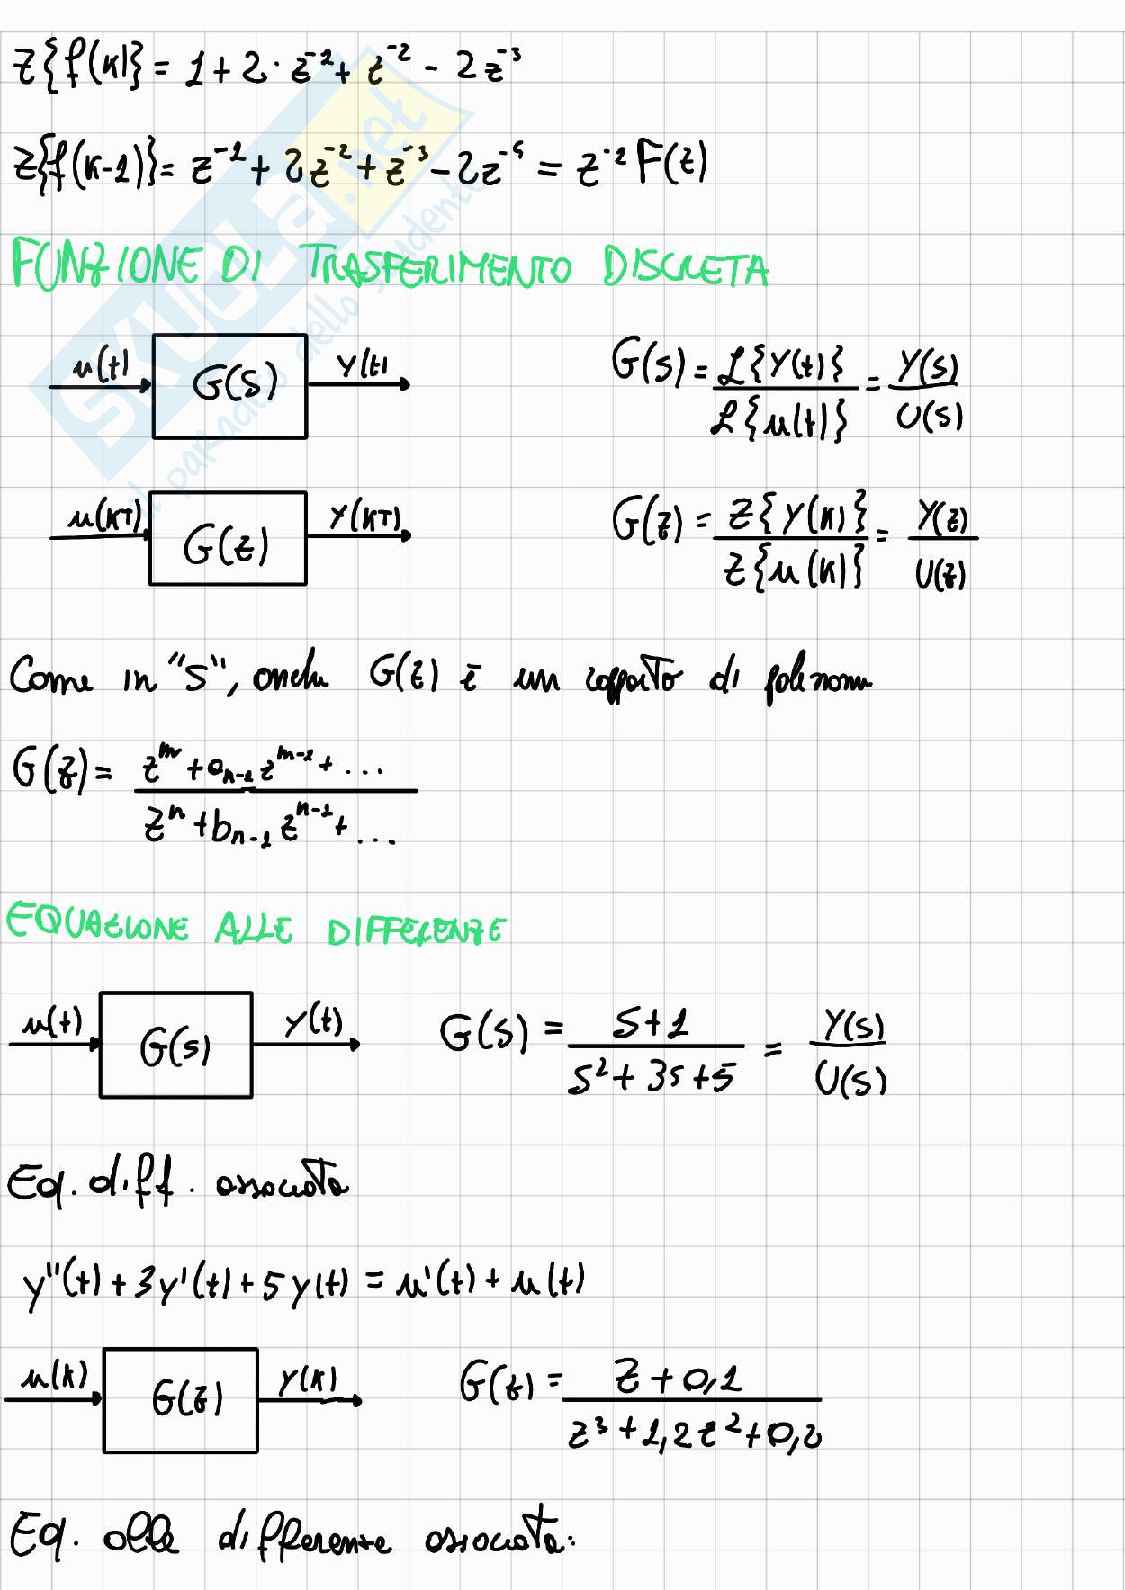 Z{f(k)} = 1 + 2 · z^-1 + z^-2 - 2z^-3
Z{f(k-1)} = z^-1 + 2z^-2 + z^-3 - 2z^-4 = z^-1 F(z)
FUNZIONE DI TRASFERIMENTO DISCRETA
u(t) G(s) y(t) G(s) = L{y(t)} / L{u(t)} = Y(s) / U(s)
u(kT) G(z) y(kT) G(z) = Z{y(k)} / Z{u(k)} = Y(z) / U(z)
Come in "s", anche G(z) è un rapporto di polinomi
G(z) = (z^m + a_n-1 z^m-1 + ...) / (z^n + b_n-1 z^n-1 + ...)
EQUAZIONE ALLE DIFFERENZE
u(t) G(s) y(t) G(s) = (s+1) / (s^2 + 3s + 5) = Y(s) / U(s)
Eq. diff. associata
y''(t) + 3y'(t) + 5y(t) = u'(t) + u(t)
u(k) G(z) y(k) G(z) = (z + 0,1) / (z^3 + 1,2z^2 + 0,2)
Eq. alle differenze associata:
SKUOLA.net
il paradiso dello studente